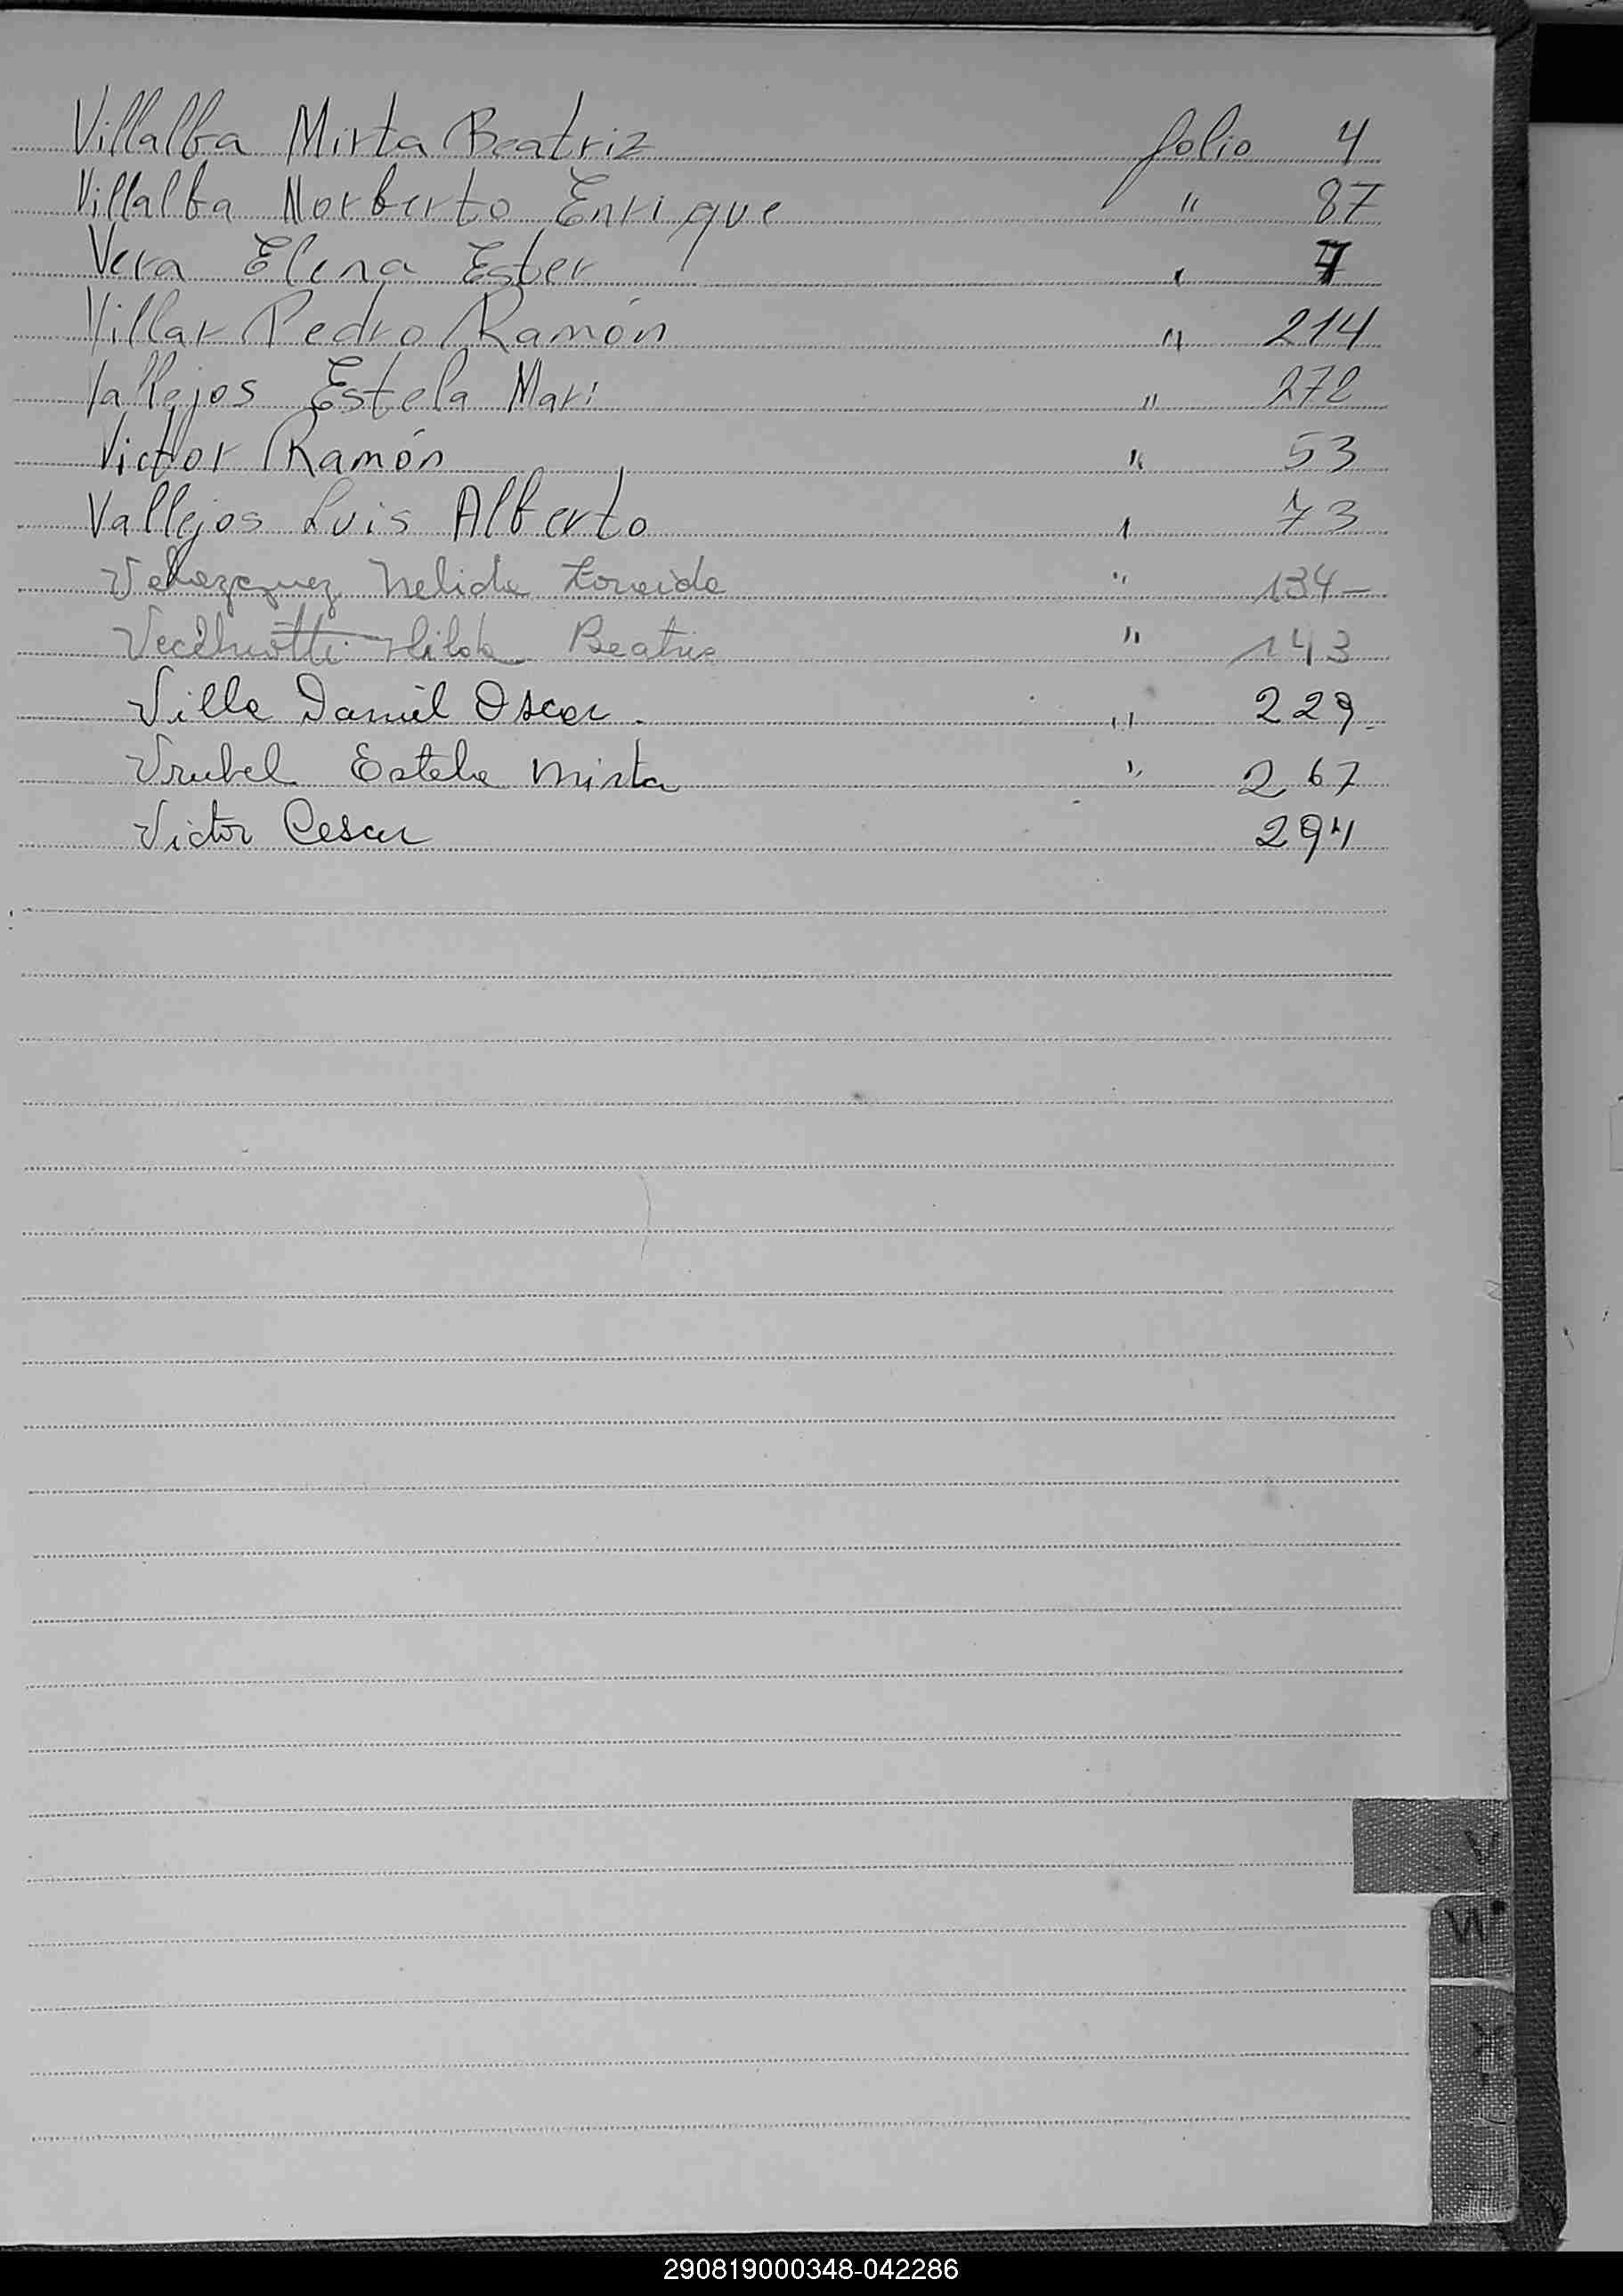 Villalba Mirta Beatriz folio 4
Villalba Norberto Enrique " 87
Vera Elena Ester " 7
Villar Pedro Ramón " 214
Vallejos Estela Mari " 272
Victor Ramón " 53
Vallejos Luis Alberto " 73
Velazquez Nelida Zoraida " 134-
Hilda Beatriz " 143
Villa Daniel Oscar. " 229-
Vrubel Estela Mirta " 267
Victor Cesar 294
V
W
290819000348-042286